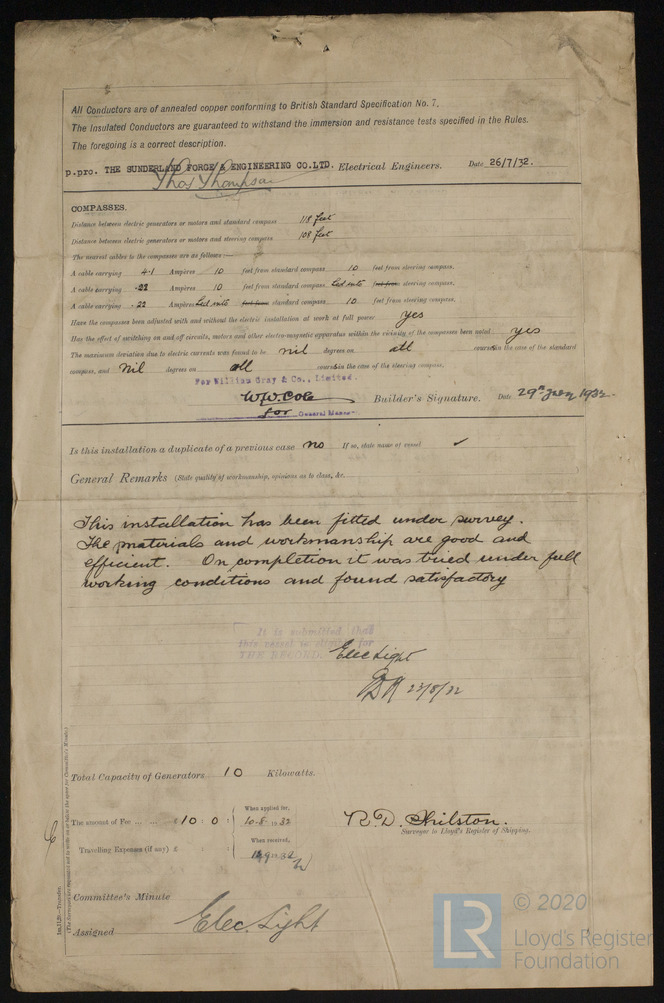 All Conductors are of annealed copper conforming to British Standard Specification No. 7.
The Insulated Conductors are guaranteed to withstand the immersion and resistance tests specified in the Rules.
The foregoing is a correct description.
p.pro. THE SUNDERLAND FORGE & ENGINEERING CO.LTD. Electrical Engineers. Date 26/7/32.
Thos Thompson
COMPASSES.
Distance between electric generators or motors and standard compass 118 feet
Distance between electric generators or motors and steering compass 108 feet
The nearest cables to the compasses are as follows:—
A cable carrying 4.1 Ampères 10 feet from standard compass 10 feet from steering compass.
A cable carrying .22 Ampères 10 feet from standard compass Led into feet from steering compass.
A cable carrying .22 Ampères Led into feet from standard compass 10 feet from steering compass.
Have the compasses been adjusted with and without the electric installation at work at full power yes
Has the effect of switching on and off circuits, motors and other electro-magnetic apparatus within the vicinity of the compasses been noted yes
The maximum deviation due to electric currents was found to be nil degrees on all course in the case of the standard
compass, and Nil degrees on all course in the case of the steering compass.
For William Gray & Co., Limited.
W.W. Cole Builder's Signature. Date 29th 1932.
for General Manager
Is this installation a duplicate of a previous case no If so, state name of vessel ✓
General Remarks (State quality of workmanship, opinions as to class, &c.
This installation has been fitted under survey.
The materials and workmanship are good and
efficient. On completion it was tried under full
working conditions and found satisfactory
It is submitted that
this vessel is eligible for
THE RECORD. Elec Light
23/8/32
Total Capacity of Generators 10 Kilowatts.
The amount of Fee ... ... £10 : 0 : When applied for, 10.8.1932
R.D. Shilston.
Surveyor to Lloyd's Register of Shipping.
Travelling Expenses (if any) £ : : When received,
Committee's Minute
Assigned Elec. Light
(The Surveyors are requested not to write on or below the space for Committee's Minute.)
LR © 2020
Lloyd's Register
Foundation